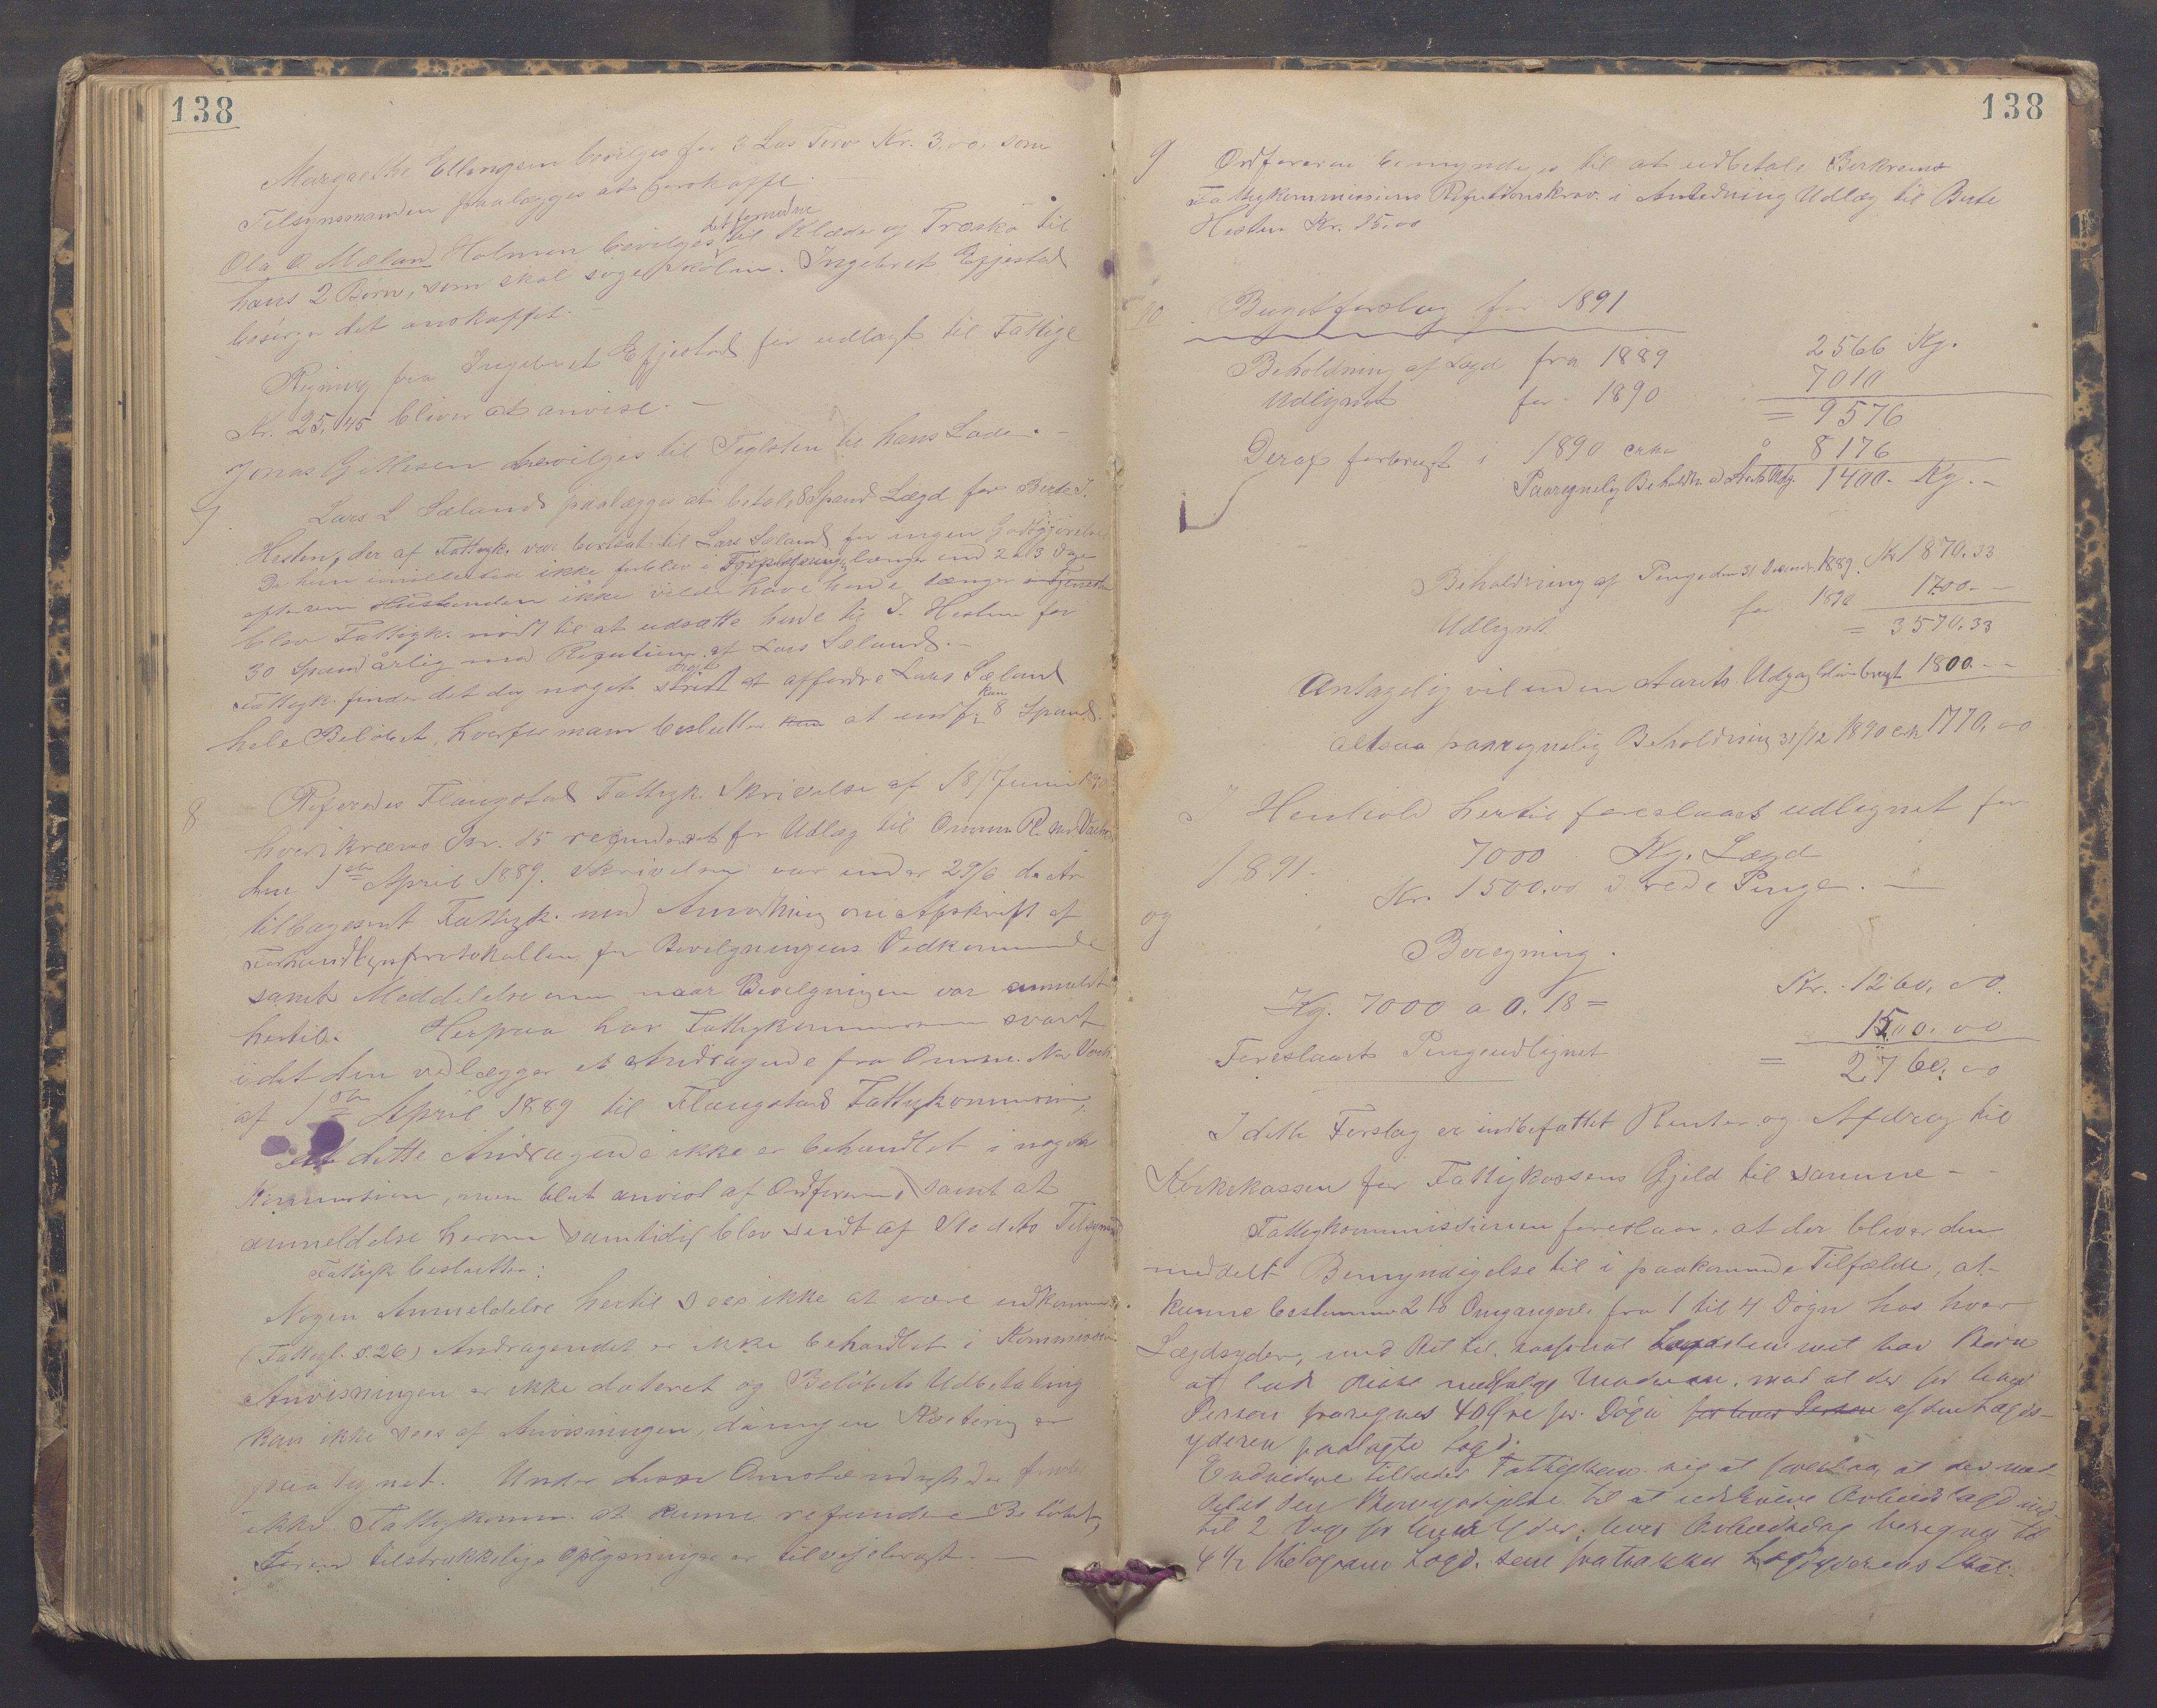 138
Margrethe Ellingsen bevilges for 3 Las Torv Kr. 3,00, som
Tilsynsmanden paalægges at fremskaffe.
Ola O Mæland Holmen bevilges det fornødne til Klæde og Træsko til
hans 2 Børn, som skal søge skolen. Ingebret Eggjestad
besørger det anskaffet.
Regning fra Ingebret Eggjestad for udlagt til Fattige
Kr. 25,45 bliver at anvise. –
Jonas Gitlesen bevilges til Teglsten til hans Lade. –
7. Lars L Sæland paalægges at betale 8 Spand Lægd for Berte J.
Hesten, der af Fattigk. var bortsat til Lars Sæland for ingen Godtgjørelse
Da hun imidlertid ikke forblev i Forpleining længer end 2 a 3 Dage
eftersom Husbonden ikke vilde have hende længer i Tjeneste
blev Fattigk. nødt til at udsætte hende til J. Hesten for
30 Spand årlig med Refusion af Lars Sæland. –
Fattigk. finder det dog noget strengt at affordre Lars Sæland
hele Beløbet, hvorfor man beslutter kun at indfri kun 8 Spand.
8 Refereredes Flaugstad Fattigk. Skrivelse af 18 Juni 1890
hvori kræves Kr. 15 refunderet for Udlæg til Omm. R. Nr.
den 1ste April 1889. Skrivelsen var under 29/6 d. År
tilbagesendt Fattigk. med Anmodning om Afskrift af
Forhandlingsprotokollen for Bevilgningens Vedkommende
samt Meddelelse om naar Bevilgningen var anmeldt
hertil. Herpaa har Fattigkommissionen svart
idet den vedlægger et Andragende fra Omm.
af 1ste April 1889 til Flaugstad Fattigkommission,
at dette Andragende ikke er behandlet i nogen
Kommission, men blot anvist af Ordføreren, samt at
anmeldelse herom samtidig blev sendt af Stedets Tilsynsmand
Fattigk beslutter:
Nogen Anmeldelse hertil sees ikke at være indkommen.
(Fattigl. §. 26) Andragendet er ikke behandlet i Kommission
Anvisningen er ikke dateret og Beløbets Udbetaling
kan ikke sees af Anvisningen, da ingen Kvitering er
paategnet. Under disse Omstændigheder finder
ikke Fattigkomm. at kunne refundere Beløbet,
førend tilstrækkelige Oplysninger er tilveiebragt. –
138
9 Ordføreren bemyndiges til at udbetale Birkrems
Fattigkommissions Refusionskrav i Anledning Udlæg til Berte
Hesten Kr. 15.00
10. Bugetforslag for 1891
Beholdning af Lægd fra 1889 2566 Kg.
Udlignet for 1890 7010
= 9576
Deraf forbrugt i 1890 cirka 8176
Paaregnelig Beholdn. ved Årets Udg. 1400. Kg. –
Beholdning af Penge den 31 Decemb. 1889. Kr 1870.33
Udlignet for 1890 1700. –
= 3570.33
Antagelig vil inden Aarets Udgang blive brugt 1800. –
altsaa paaregnelig Beholdning 31/12 1890 cirk 1770,00
I Henhold hertil foreslaaes udlignet for
1891. 7000 Kg. Lægd
og Kr. 1500.00 i rede Penge. –
Beregning.
Kg. 7000 a 0.18 = Kr. 1260,00.
Foreslaaet Pengeudlignet 1500.00
= 2760,00
I dette Forslag er indbefattet Renter og Afdrag til
Kirkekassen for Fattigkassens Gjeld til samme –
Fattigkommissionen foreslaar, at der bliver den
meddelt Bemyndigelse til i paakommende Tilfælde, at
kunne bestemme 2 to Omgangere fra 1 til 4 Døgn hos hver
Lægdsyder, med Ret til,
at lade disse medfølge Moderen, mod at der for hver
Person fraregnes 40 Øre pr. Døgn for hver Person af den Lægds-
yderen paalagte Lægd.
Endvidere tillader Fattigkom. sig at foreslaa, at der med-
deles den Bemyndigelse til at udskrive Arbeidslægd ind
til 2 Dage for hver Yder; hver Arbeidsdag beregnes til
4 1/2 Kilogram Lægd, som fratrækkes Lægdyderens Skat.